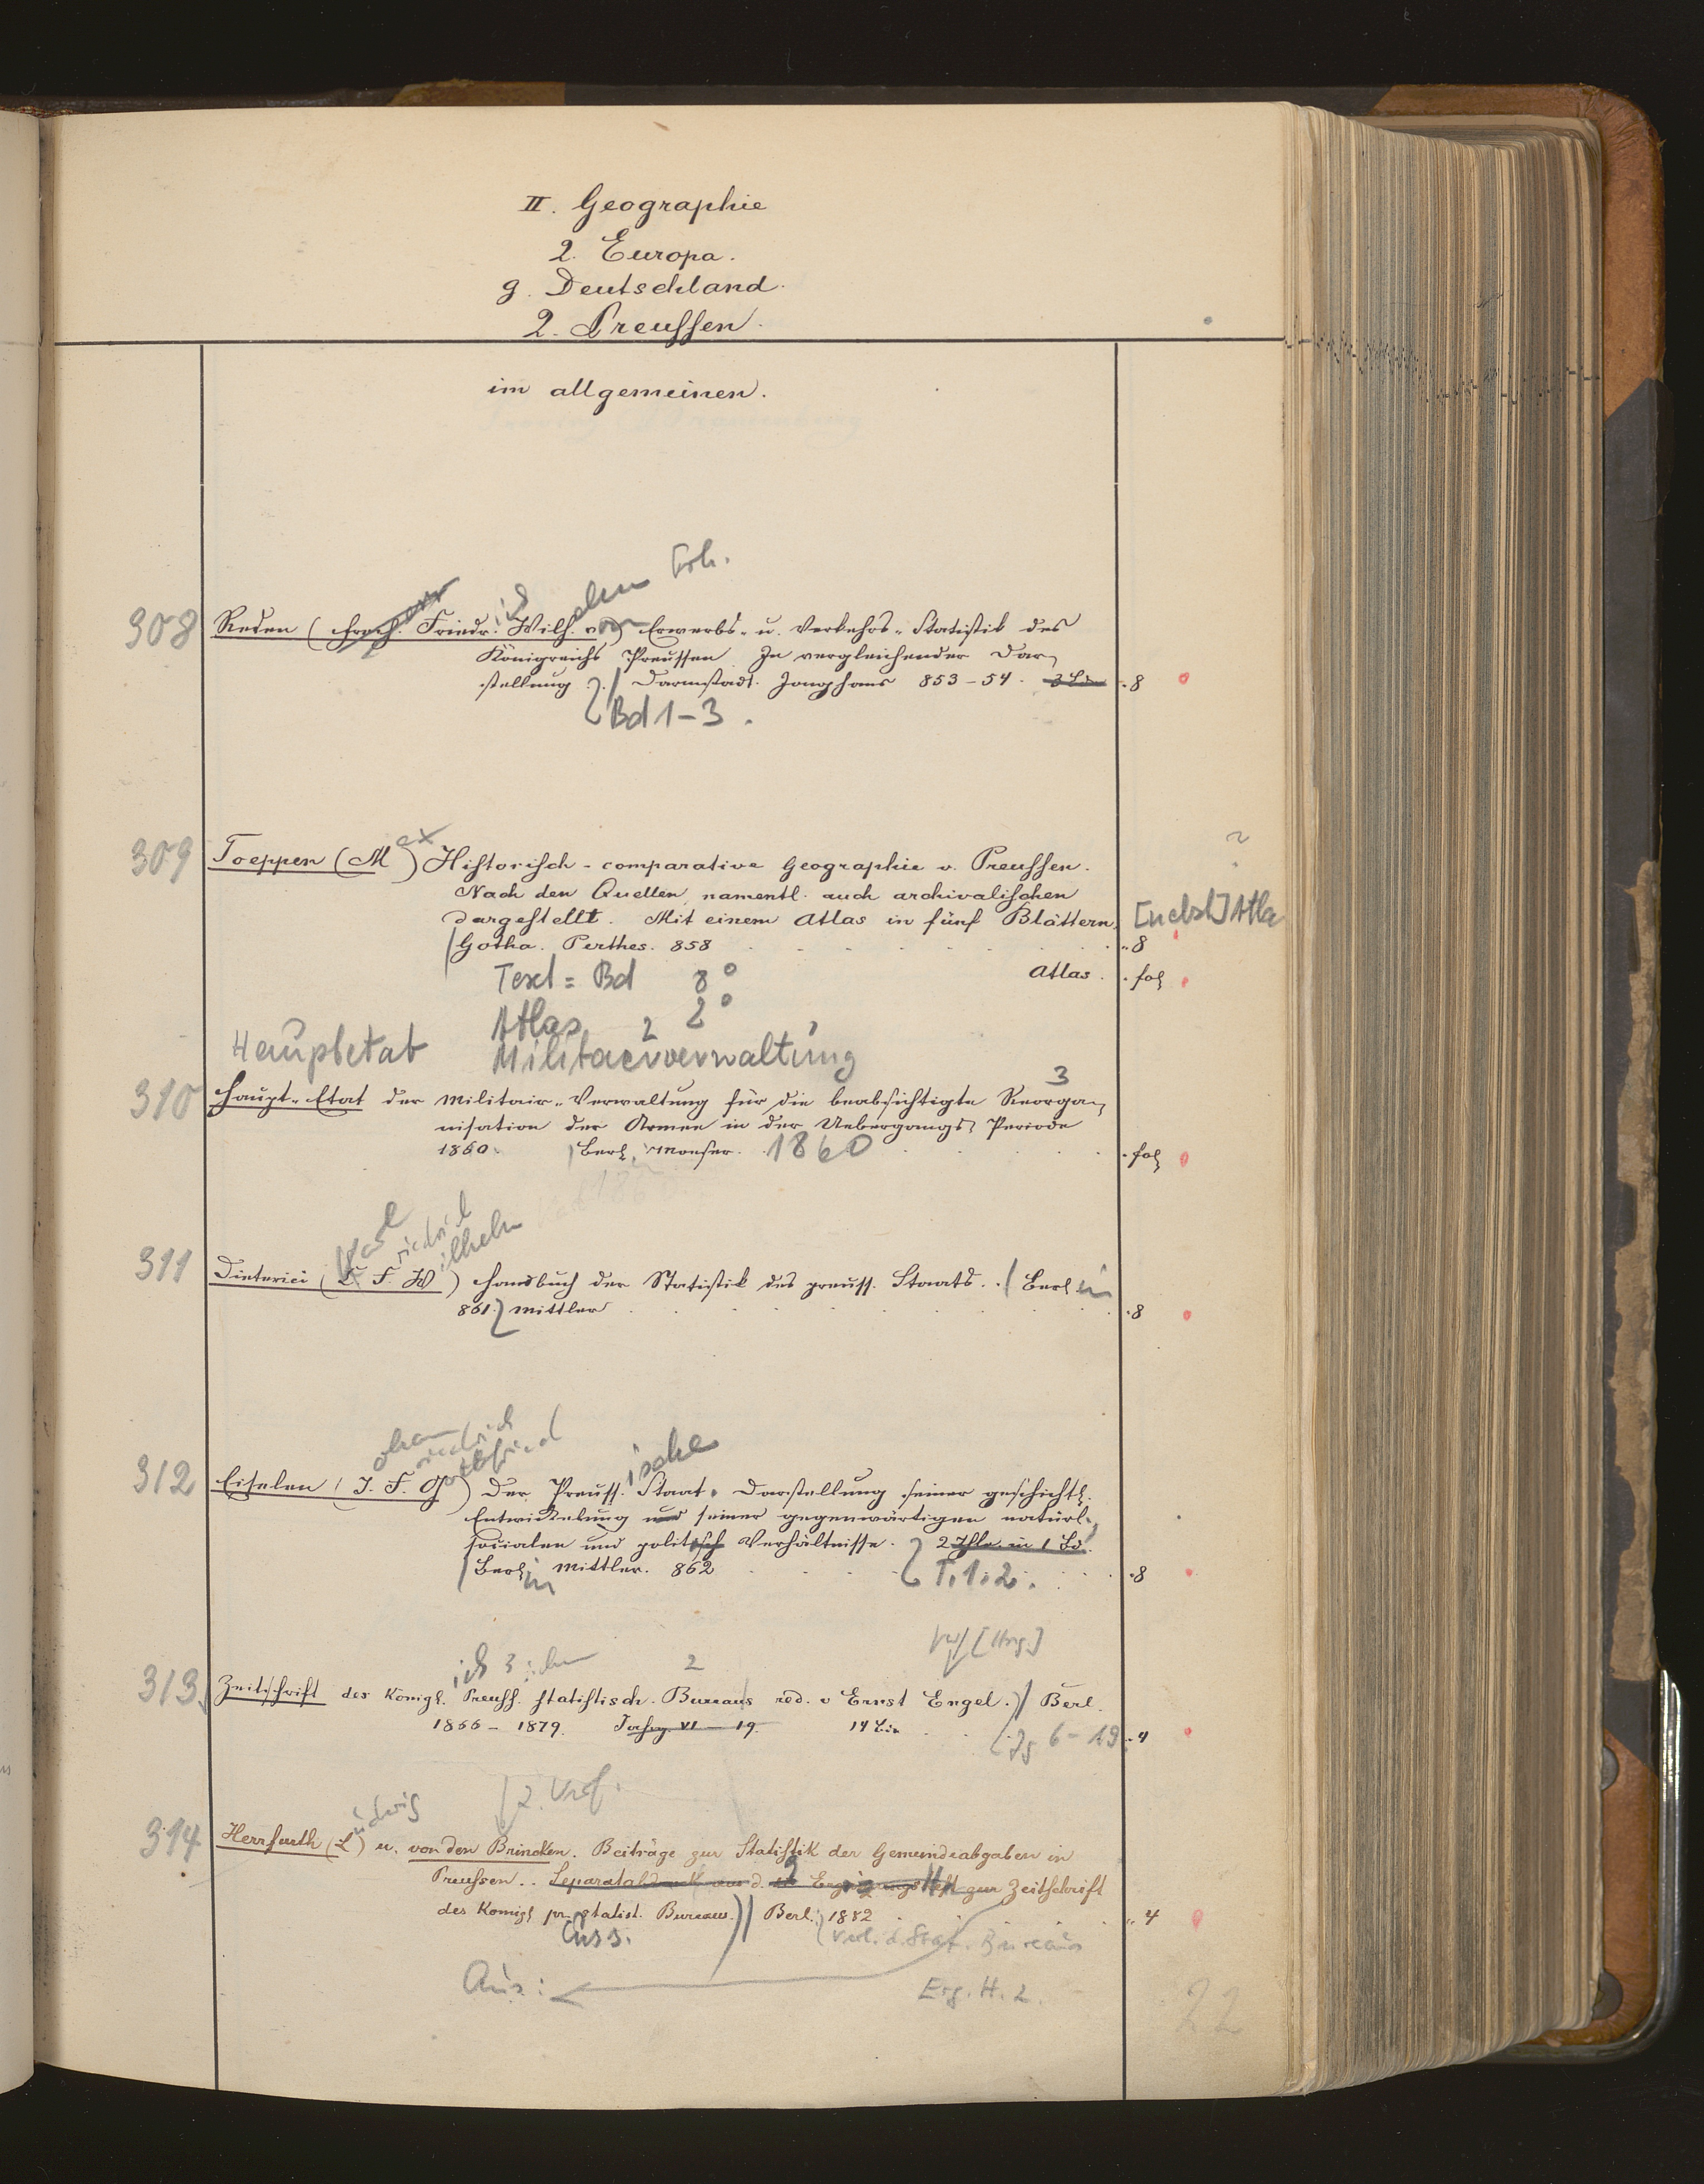 II. Geographie
2. Europa.
g. Deutschland.
2. Preussen.
im allgemeinen.
Frh.
308 Reden (Friedr. Wilh. von) Erwerbs- u. Verkehrs-Statistik des
Königreichs Preussen. In vergleichender Dar-
stellung. Darmstadt. Jonghaus 853-54. 3 Bde 8
Bd 1-3.
309 Toeppen (Max) Historisch-comparative Geographie v. Preussen.
Nach den Quellen, namentl. auch archivalischen
dargestellt. Mit einem Atlas in fünf Blättern. [nebst] Atla
Gotha. Perthes. 858 8
Text = Bd 8° Atlas. fol
Atlas 2 2°
Hauptetat Militaerverwaltung
3
310 Haupt-Etat der Militair-Verwaltung für die beabsichtigte Reorga-
nisation der Armee in der Uebergangs Periode
1860. Berl. Moeser. 1860 fol
arl riedrich ilhelm
311 Dieterici (C. F. W) Handbuch der Statistik des preuss. Staats. Berlin
861. Mittler 8
ohann riedrich ottfried ische
312 Eiselen (J. F. G) Der Preuss. Staat. Darstellung seiner geschichtl.
Entwickelung und seiner gegenwärtigen natürl.,
socialen und politisch Verhältnisse. 2 Thle. in 1 Bd.
Berlin Mittler. 862 T. 1. 2. 8
[Hrsg.]
ich 3 ichen 2
313. Zeitschrift des Königl. Preuss. statistisch. Bureaus red. v Ernst Engel. Berl.
1866-1879. Jahrg. VI-19. 14 Bde Jg 6-19. 4
2. Verf.
udwig
314 Herrfurth (L) u. von den Brincken. Beiträge zur Statistik der Gemeindeabgaben in
Preussen. Separatabdruck aus d. Ergänzungsheft zur Zeitschrift
des Königl pr. statist. Bureaus. Berl. 1882 4
euss. Verl. d. Stat. Bureaus
Aus: Erg. H. 2.
22